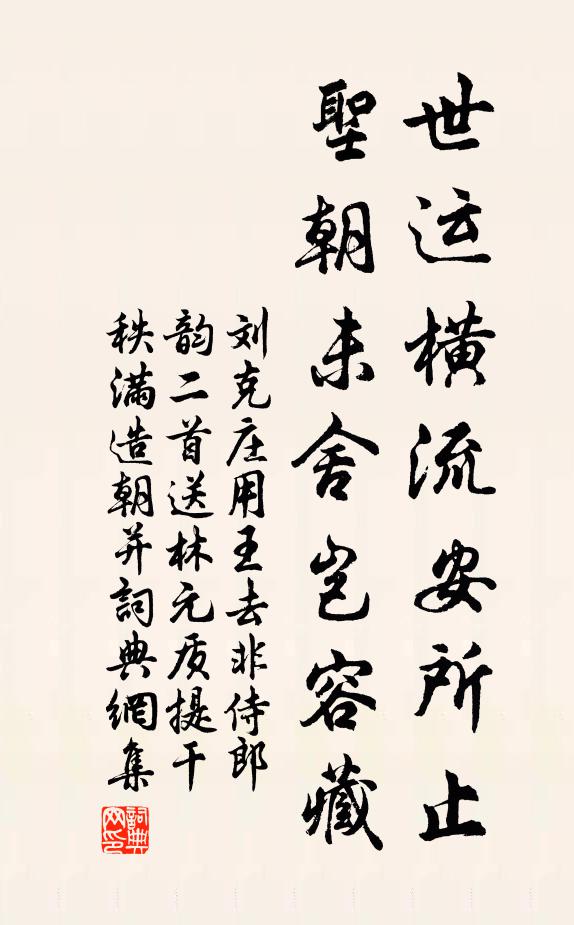 世运横流安所止
聖朝未舍岂容藏
刘克庄用王去非侍郎
韵二首送林元质提干
秩满造朝并詞典網集
詞典网印